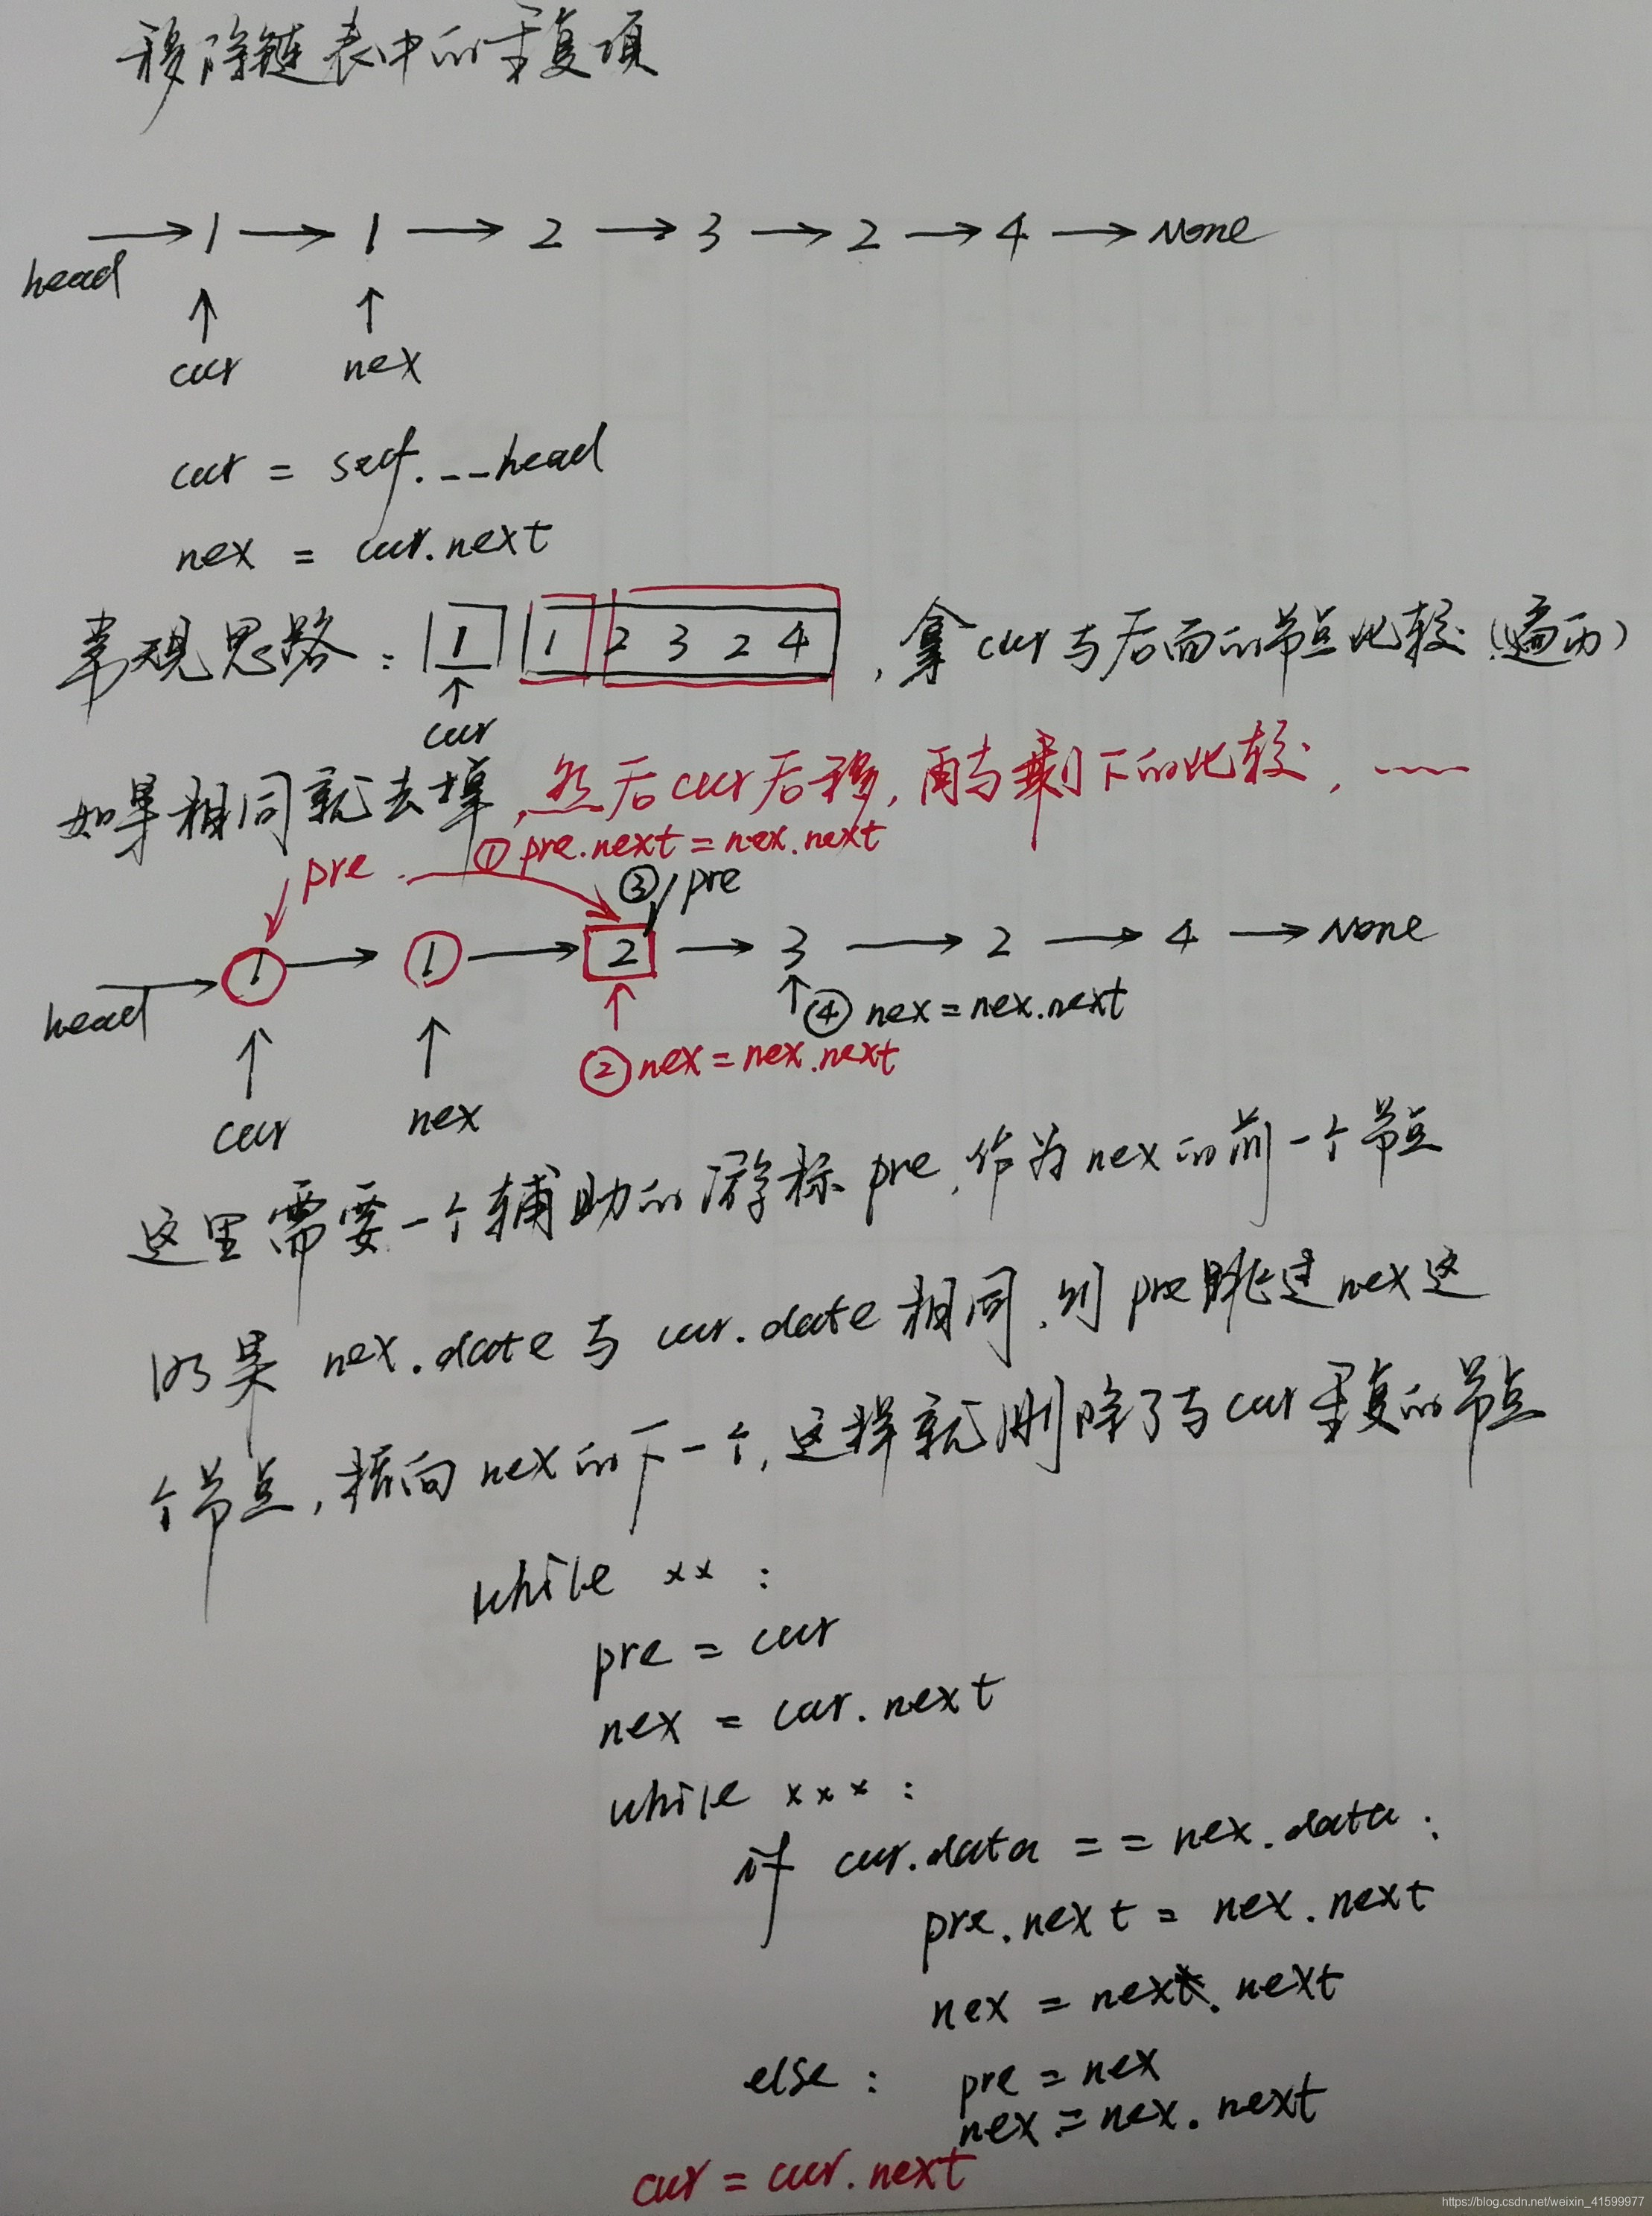 移除链表中的重复项
head → 1 → 1 → 2 → 3 → 2 → 4 → None
↑ ↑
cur nex
cur = self.__head
nex = cur.next
常规思路: 1 1 2 3 2 4 , 拿cur与后面的节点比较(遍历)
↑
cur
如果相同就去掉,然后cur后移,再与剩下的比较, ……
① pre.next = nex.next
pre ③ pre
head → 1 → 1 → 2 → 3 → 2 → 4 → None
↑ ↑ ↑ ↑ ④ nex = nex.next
② nex = nex.next
cur nex
这里需要一个辅助的游标pre,作为nex的前一个节点
如果 nex.date 与 cur.date 相同,则 pre跳过nex这
个节点,指向nex的下一个,这样就删除了与cur重复的节点
while xx :
pre = cur
nex = cur.next
while xxx :
if cur.data == nex.data :
pre.next = nex.next
nex = nex.next
else : pre = nex
nex = nex.next
cur = cur.next
https://blog.csdn.net/weixin_41599977